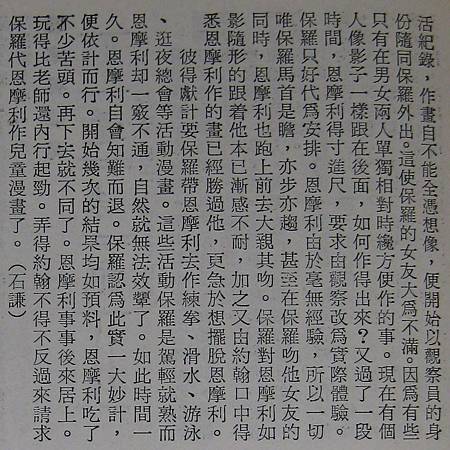 活紀錄，作畫自不能全憑想像，便開始以觀察員的身
份隨同保羅外出。這使保羅的女友大為不滿。因為有些
只有在男女兩人單獨相對時纔方便作的事。現在有個
人像影子一樣跟在後面，如何作得出來？又過了一段
時間，恩摩利得寸進尺，要求由觀察改為實際體驗。
保羅只好代為安排。恩摩利由於毫無經驗，所以一切
唯保羅馬首是瞻，亦步亦趨，甚至在保羅吻他女友的
同時，恩摩利也跑上前去大親其吻。保羅對恩摩利如
影隨形的跟着他本已漸感不耐，加之又由約翰口中得
悉恩摩利作的畫已經勝過他，更急於想擺脫恩摩利。
彼得獻計要保羅帶恩摩利去作練拳、滑水、游泳
、逛夜總會等活動漫畫。這些活動保羅是駕輕就熟而
恩摩利却一竅不通，自然就無法效顰了。如此時間一
久。恩摩利自會知難而退。保羅認為此實一大妙計，
便依計而行。開始幾次的結果均如預料，恩摩利吃了
不少苦頭。再下去就不同了。恩摩利事事後來居上。
玩得比老師還內行起勁。弄得約翰不得不反過來請求
保羅代恩摩利作兒童漫畫了。（石謙）